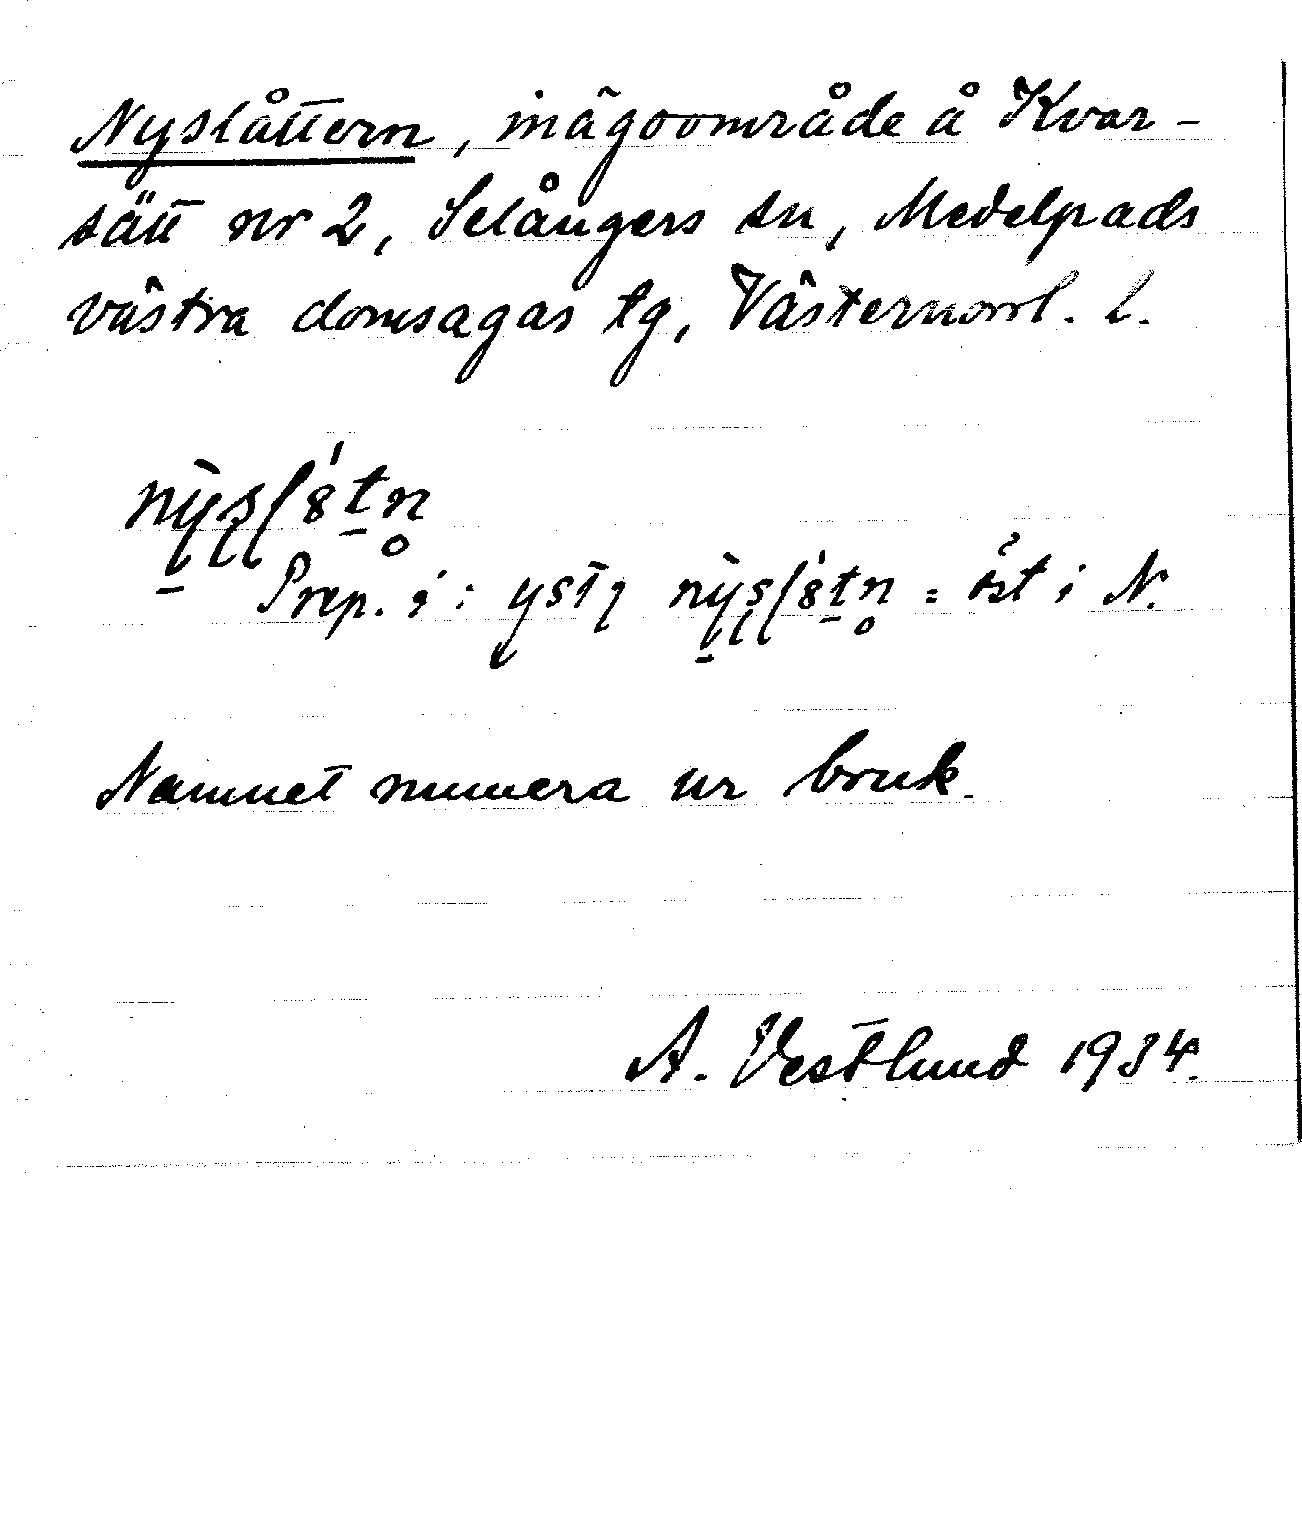 Nyslåttern, inägoområde å Kvar-
sätt nr 2, Selångers sn, Medelpads
västra domsagas tg, Västernorrl. l.
Prep. i: = öst i N.
Namnet numera ur bruk.
A. Vestlund 1934.